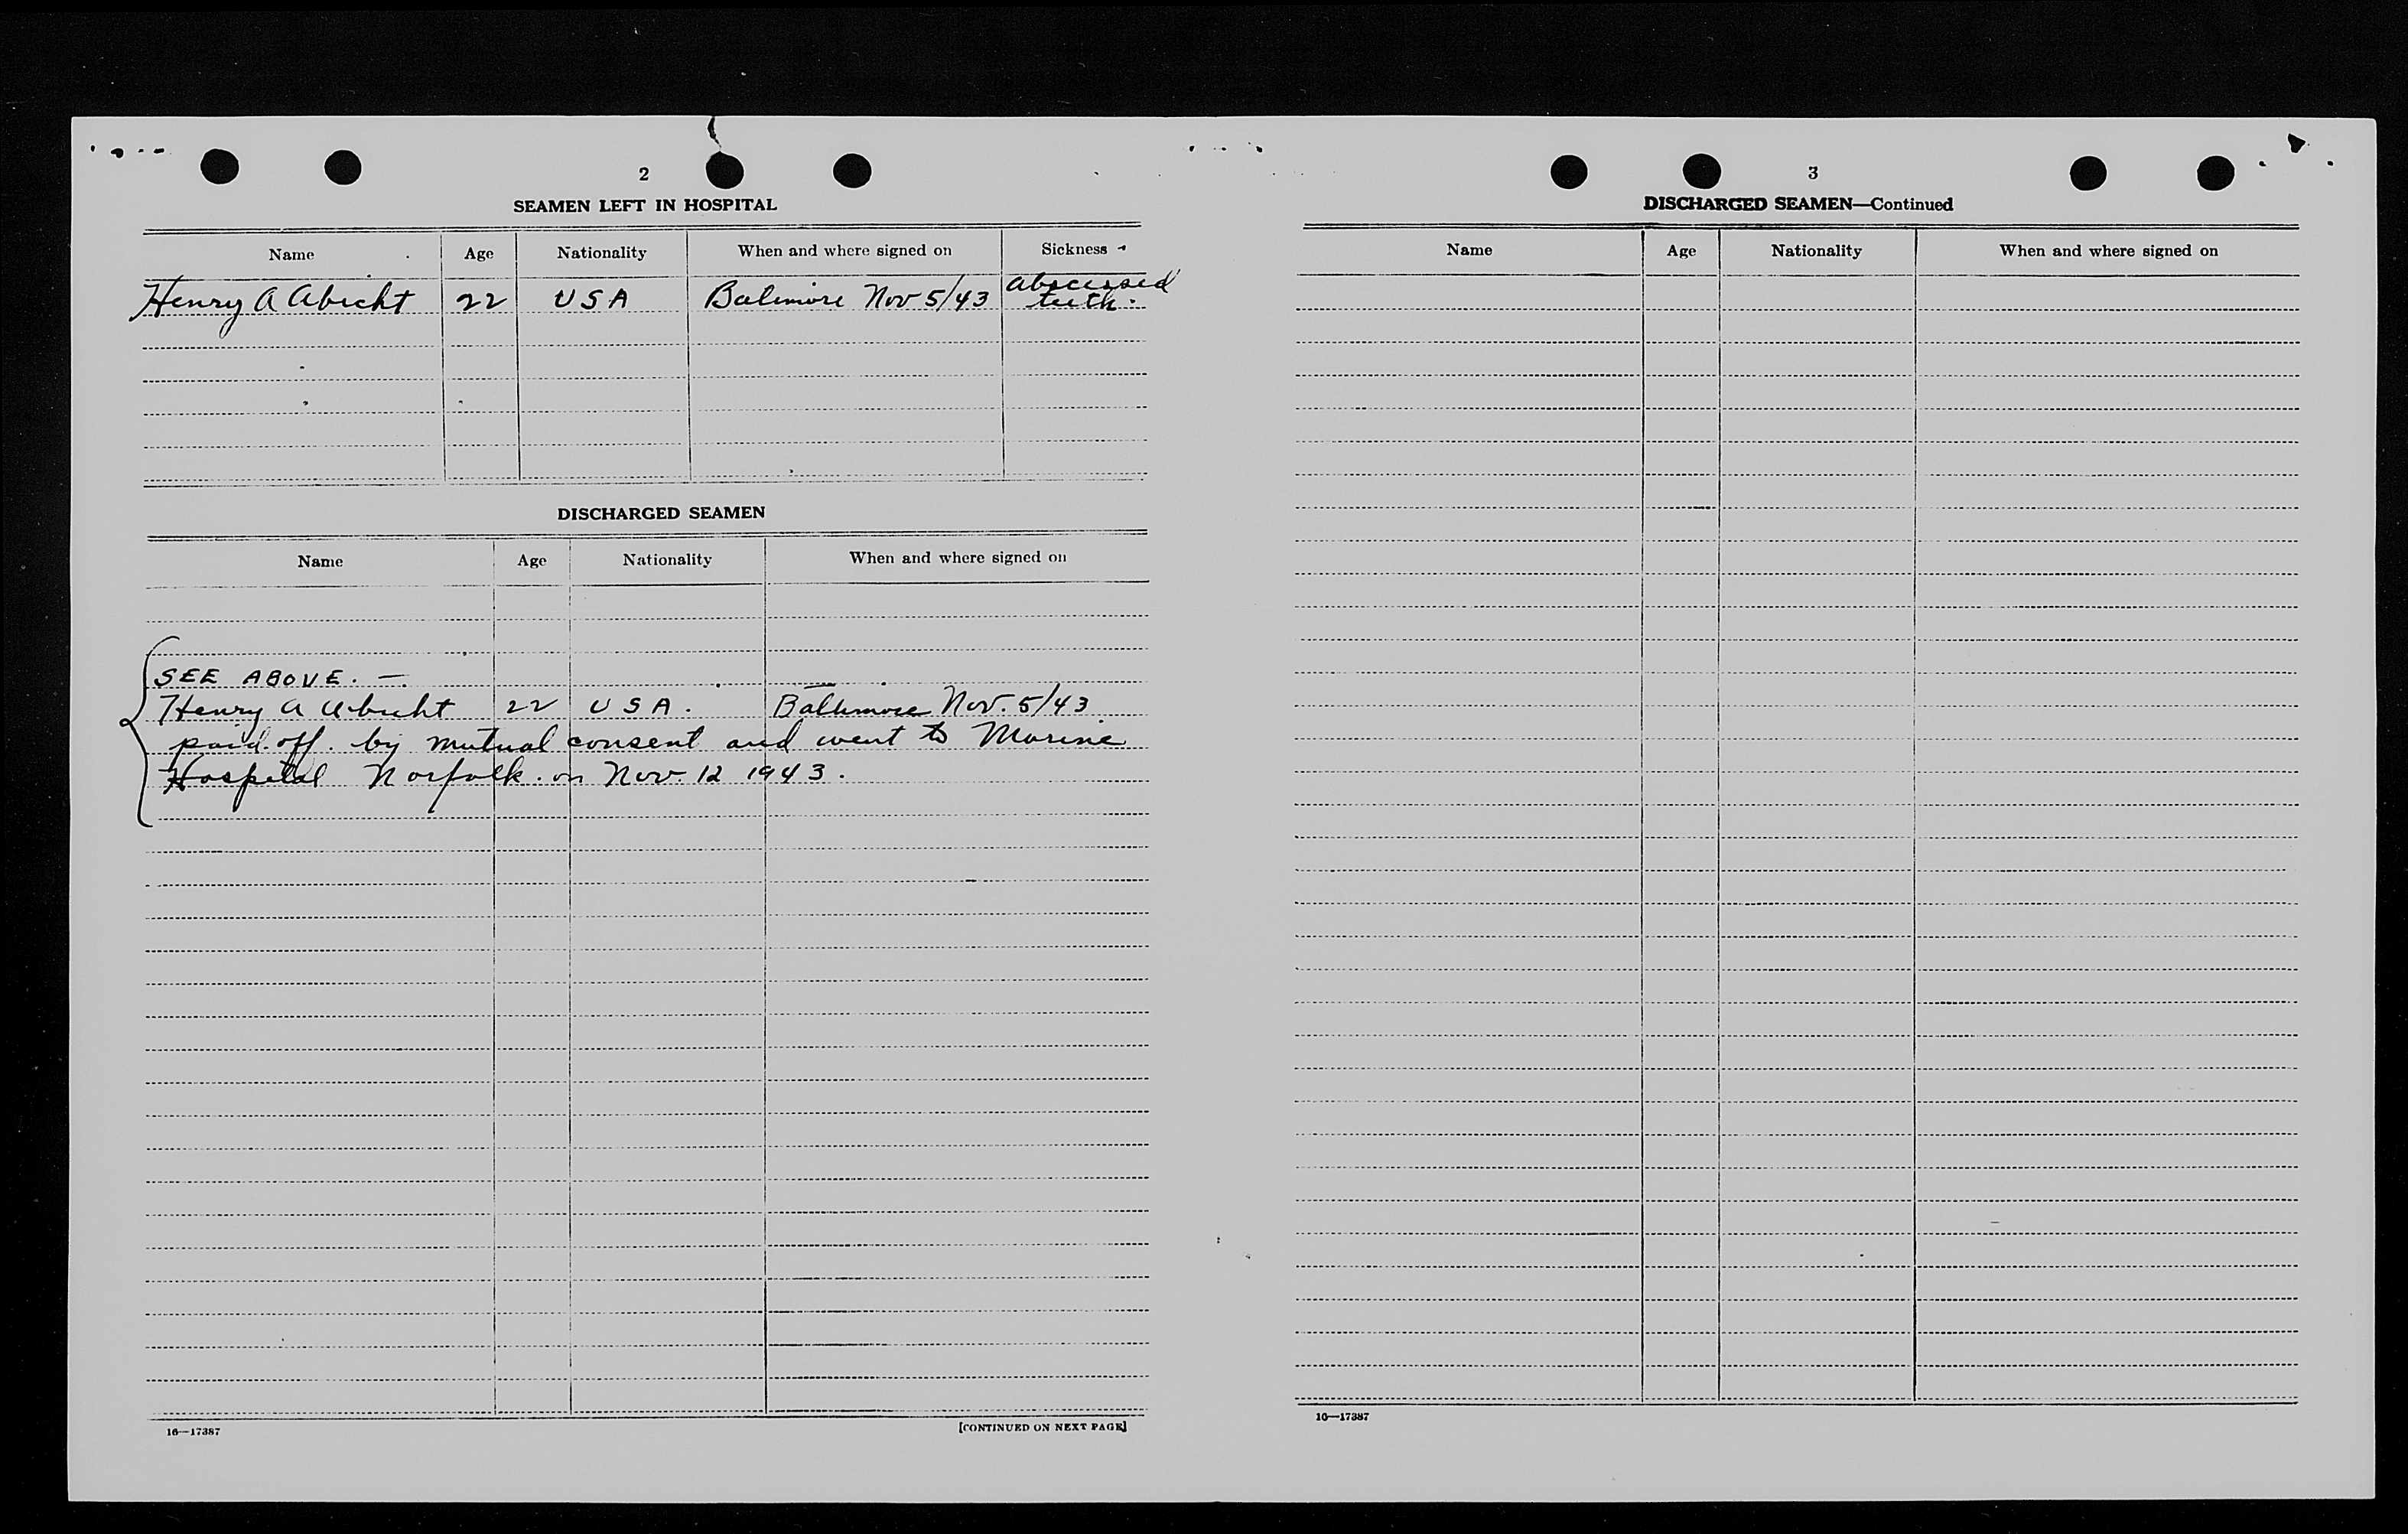 2
SEAMEN LEFT IN HOSPITAL
Name Age Nationality When and where signed on Sickness
Henry A Abicht 22 USA Baltimore Nov 5/43 abscessed teeth.
DISCHARGED SEAMEN
Name Age Nationality When and where signed on
SEE ABOVE. —
Henry A Abicht 22 USA. Baltimore Nov. 5/43
paid off. by mutual consent and went to Marine
Hospital Norfolk. on Nov. 12 1943.
16—17387 [CONTINUED ON NEXT PAGE]
3
DISCHARGED SEAMEN—Continued
Name Age Nationality When and where signed on
16—17387